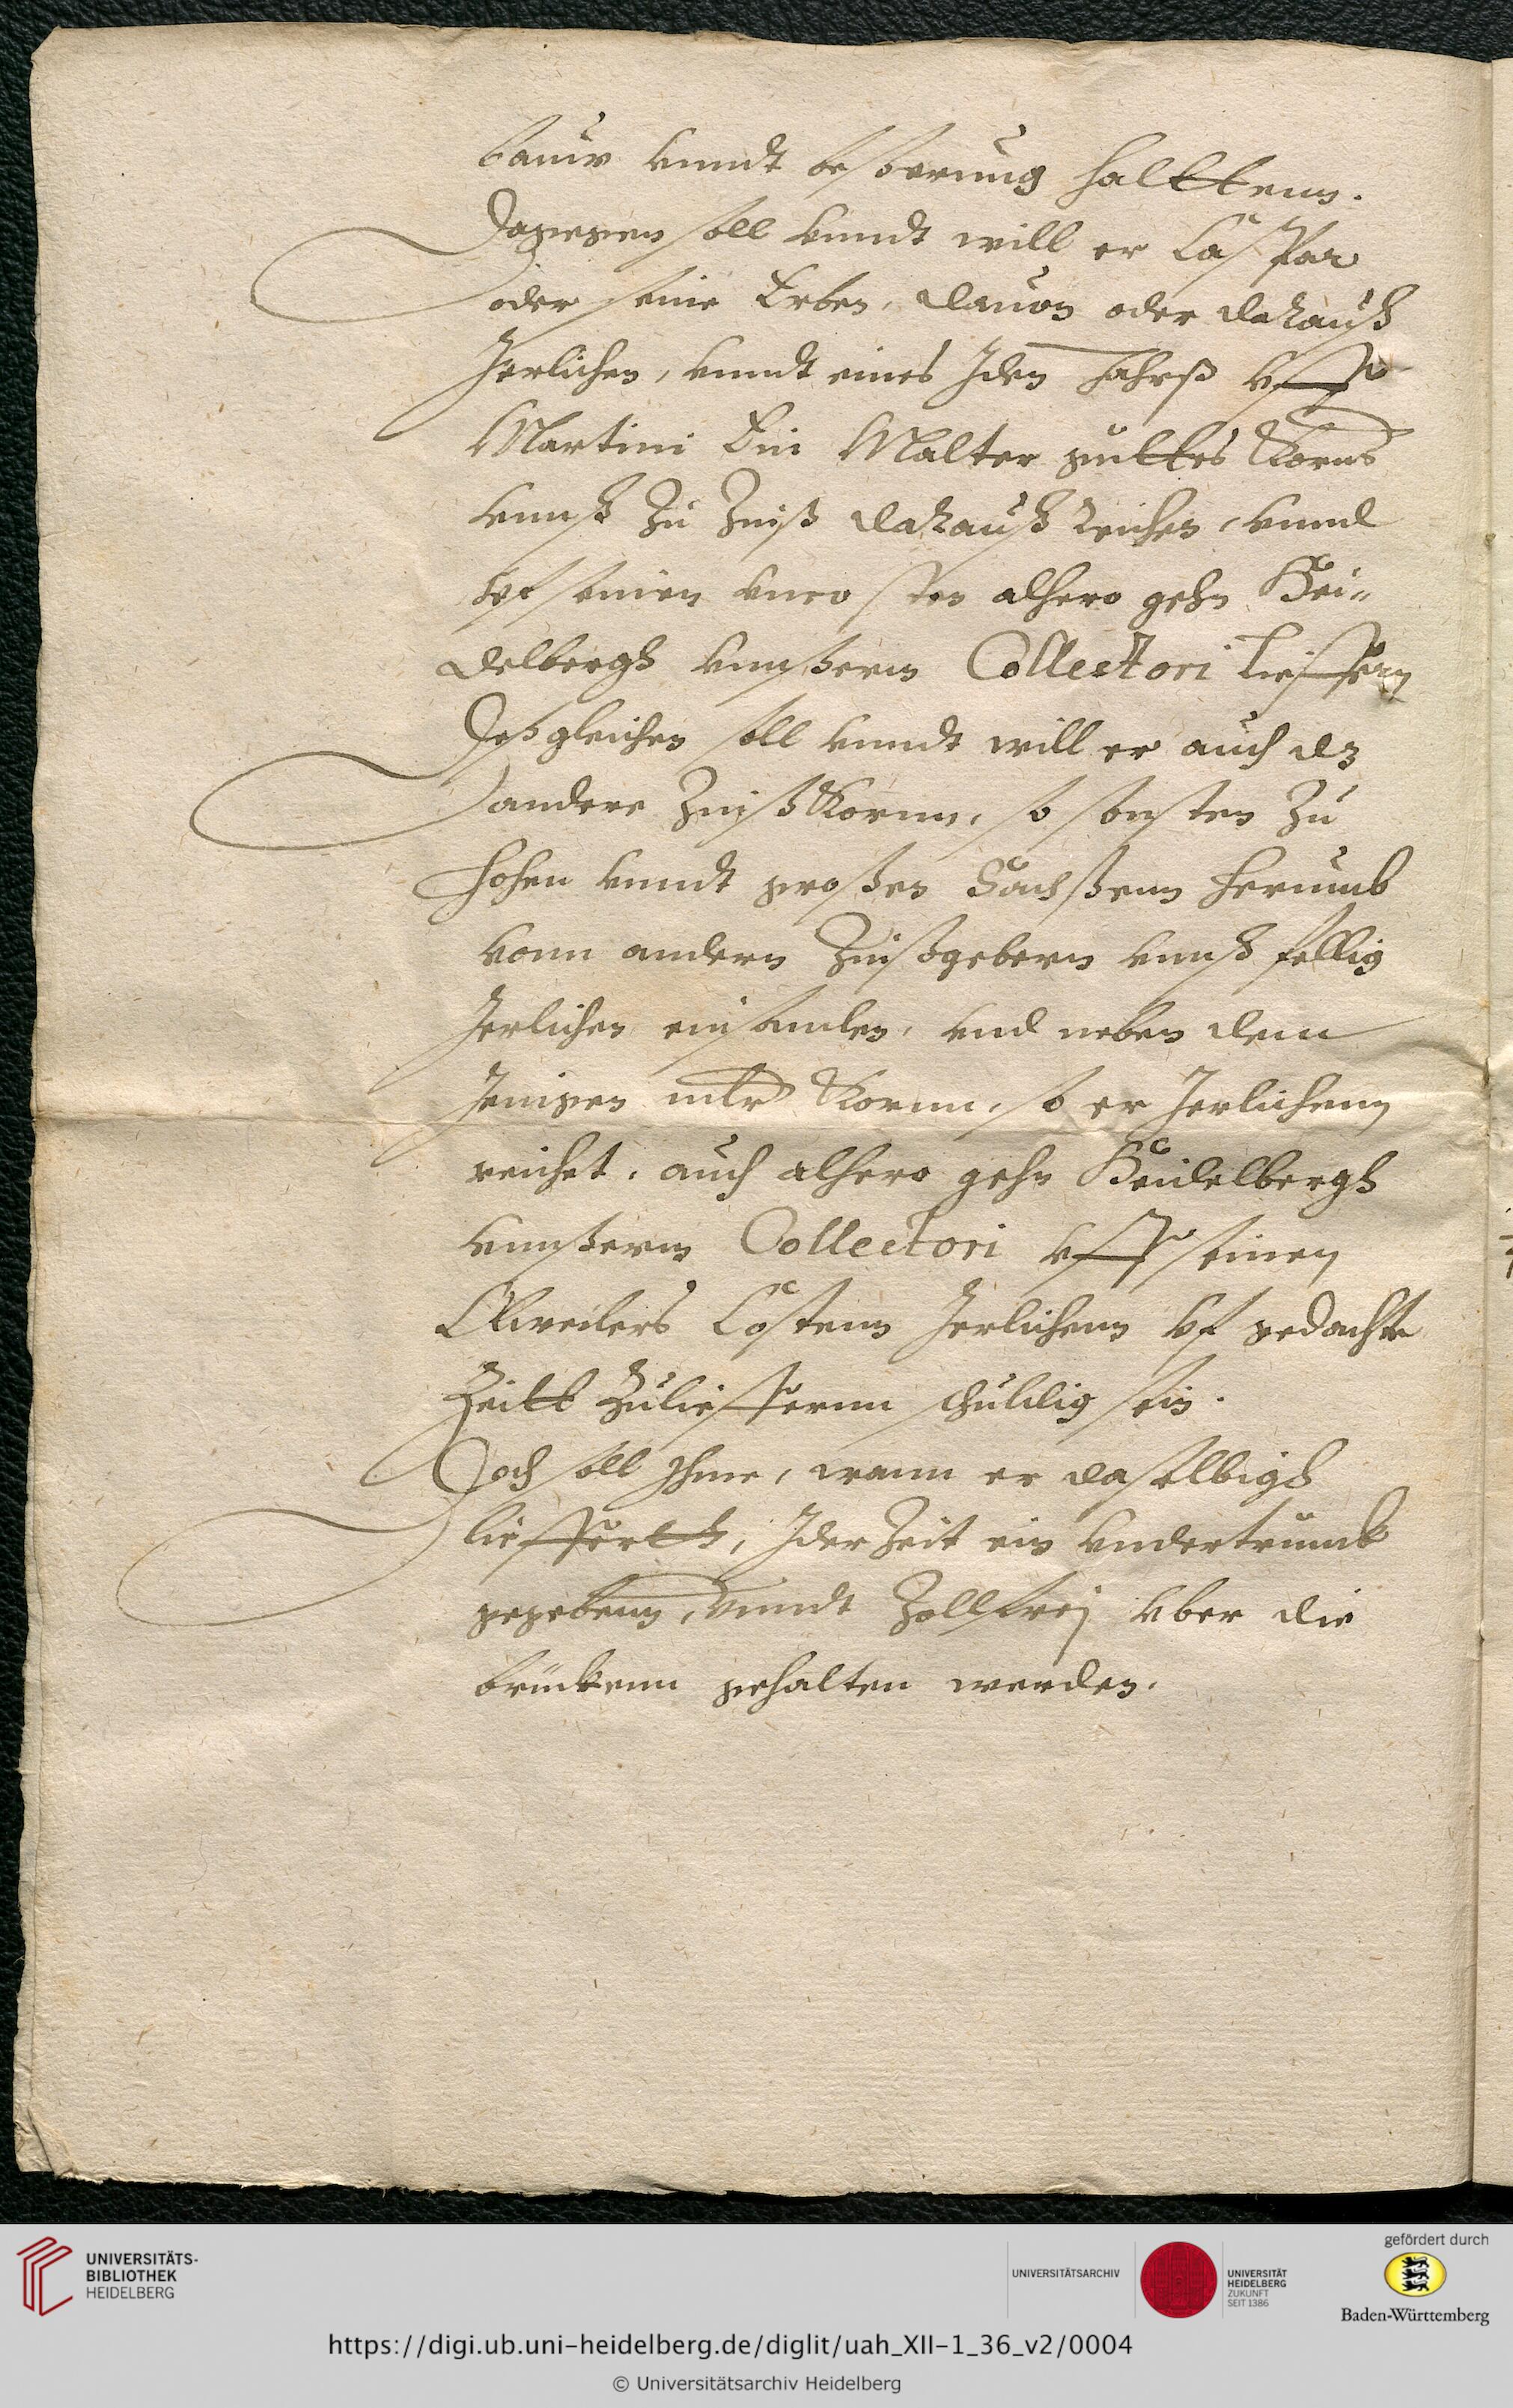 bauw vnndt beßerung halttenn.
Dagegen soll vnndt will er Caspar
oder seine Erben, dauon oder darauß
Jerlichen, vnndt eines Jden Jahrß vff
Martini Ein Malter guttes Korns
vnnß zu Zinß darauß reichen, vnnd
vf seinen vncosten alhero gehn Hei-
delbergh vnnßerm Collectori lieffern
Deßgleichen soll vnndt will er auch dz
andere Zinß Kornn, so sonsten zu
Hohen vnndt großen Sachßenn herumb
vonn andern Zinßgebern vnnß fellig
Jerlichen einsamlen, vnd neben dem
Jenigen mlr Kornn, so er Jerlichenn
reichet, auch alhero gehn Heidelbergh
vnnßerm Collectori vff seinen
Costenn Jerlichenn vf gedachte
Zeitt zulieffernn schuldig sein.
Doch soll Ihme, wann er daselbigh
lieffertt, Jder Zeit ein vndertrunck
gegebenn, vnndt Zollfrej vber die
brückenn gehalten werden.
UNIVERSITÄTS-
BIBLIOTHEK
HEIDELBERG
UNIVERSITÄTSARCHIV
UNIVERSITÄT
HEIDELBERG
ZUKUNFT
SEIT 1386
gefördert durch
Baden-Württemberg
https://digi.ub.uni-heidelberg.de/diglit/uah_XII-1_36_v2/0004
© Universitätsarchiv Heidelberg